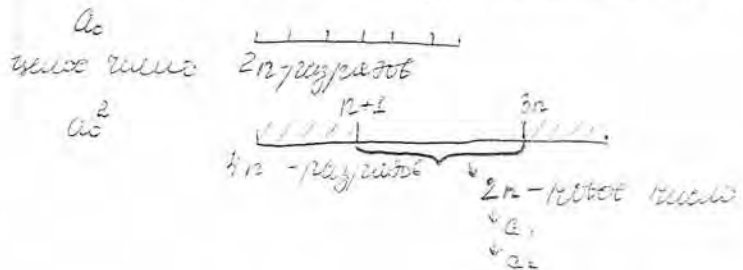 a₀
целое число 2n-разрядов
n+1 3n
a₀²
4n-разрядов
2n- новое число
a₁
a₂